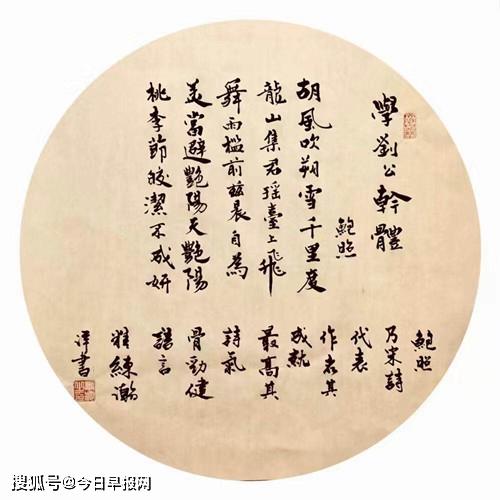 學劉公幹體
鮑照
胡風吹朔雪千里度
龍山集君瑤臺上飛
舞兩楹前茲晨自為
美當避艷陽天艷陽
桃李節皎潔不成妍
鮑照
乃宋詩
代表
作者其
成就
最高其
詩氣
骨勁健
語言
精練瀚
洋書
搜狐号@今日早报网